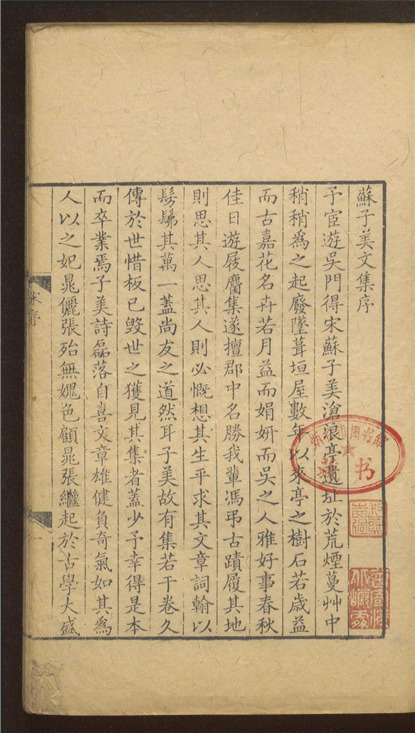 蘇子美文集序
予宦遊吳門得宋蘇子美滄浪亭遺址於荒煙蔓艸中
稍稍為之起廢墜葺垣屋數年以來亭之樹石若歲益
而古嘉花名卉若月益而娟妍而吳之人雅好事春秋
佳日遊屐麕集遂擅郡中名勝我輩馮弔古蹟履其地
則思其人思其人則必慨想其生平求其文章詞翰以
髣髴其萬一蓋尚友之道然耳子美故有集若干卷久
傳於世惜板已毀世之獲見其集者蓋少予幸得是本
而卒業焉子美詩磊落自喜文章雄健負奇氣如其為
人以之妃晁儷張殆無媿色顧晁張繼起於古學大盛
宋序
书